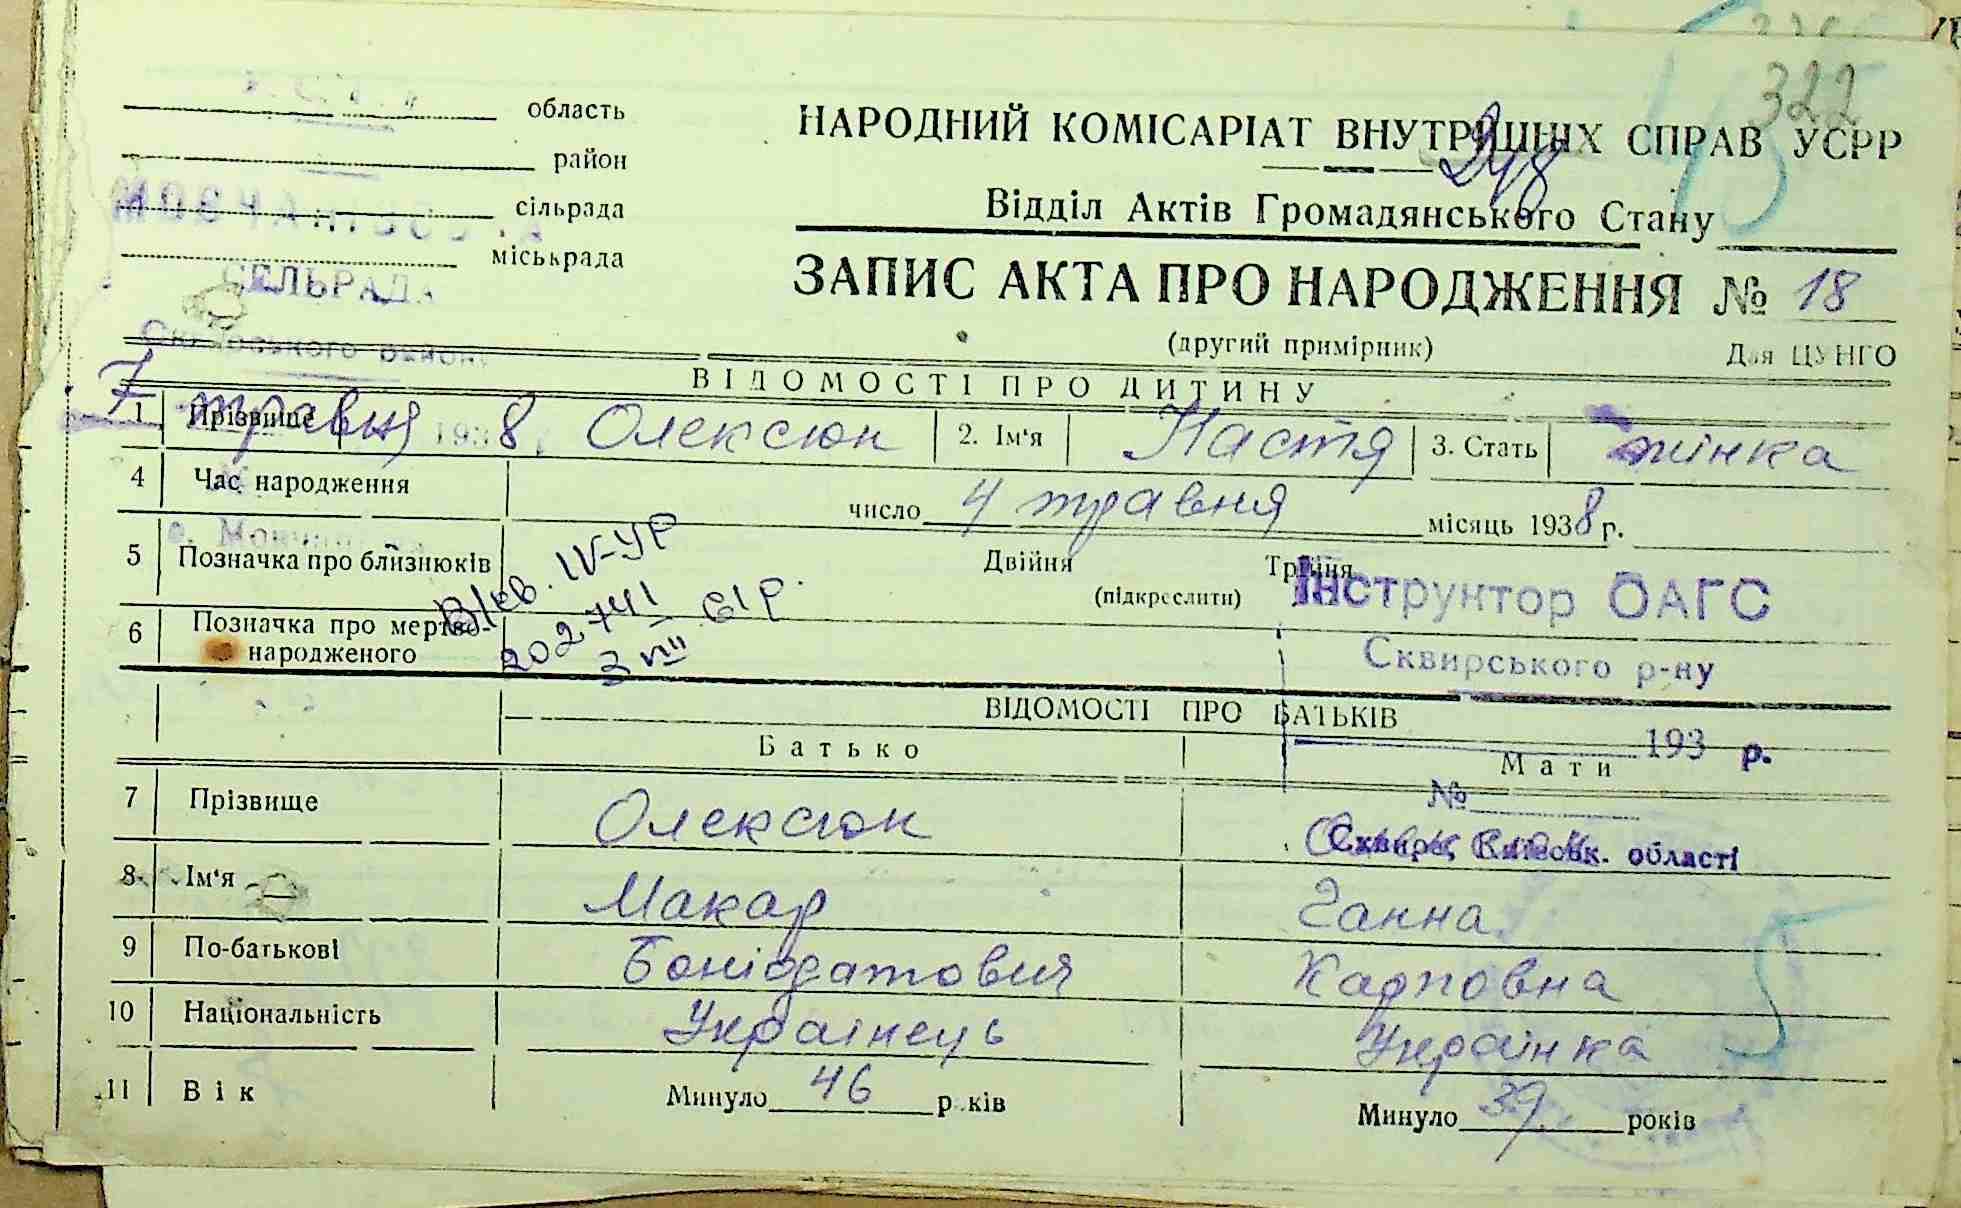 322
область
НАРОДНИЙ КОМІСАРІАТ ВНУТРІШНІХ СПРАВ УСРР
район
248
сільрада
Відділ Актів Громадянського Стану
міськрада
СЕЛЬРАДА
ЗАПИС АКТА ПРО НАРОДЖЕННЯ № 18
(другий примірник)
Для ЦУНГО
Сквирського району
ВІДОМОСТІ ПРО ДИТИНУ
7 травня 1938
1 Прізвище Олексюк 2. Ім'я Настя 3. Стать жінка
4 Час народження число 4 травня місяць 1938 р.
5 Позначка про близнюків Двійня Трійня
(підкреслити)
Інструктор ОАГС
Сквирського р-ну
6 Позначка про мертво-
народженого
IV-УР
202741
3 VIII 61 р.
ВІДОМОСТІ ПРО БАТЬКІВ
193 р.
Батько Мати
№
7 Прізвище Олексюк
Сквира, Київськ. області
8 Ім'я Макар Ганна
9 По-батькові Боніодатович Карповна
10 Національність Українець Українка
11 Вік Минуло 46 років Минуло 39 років